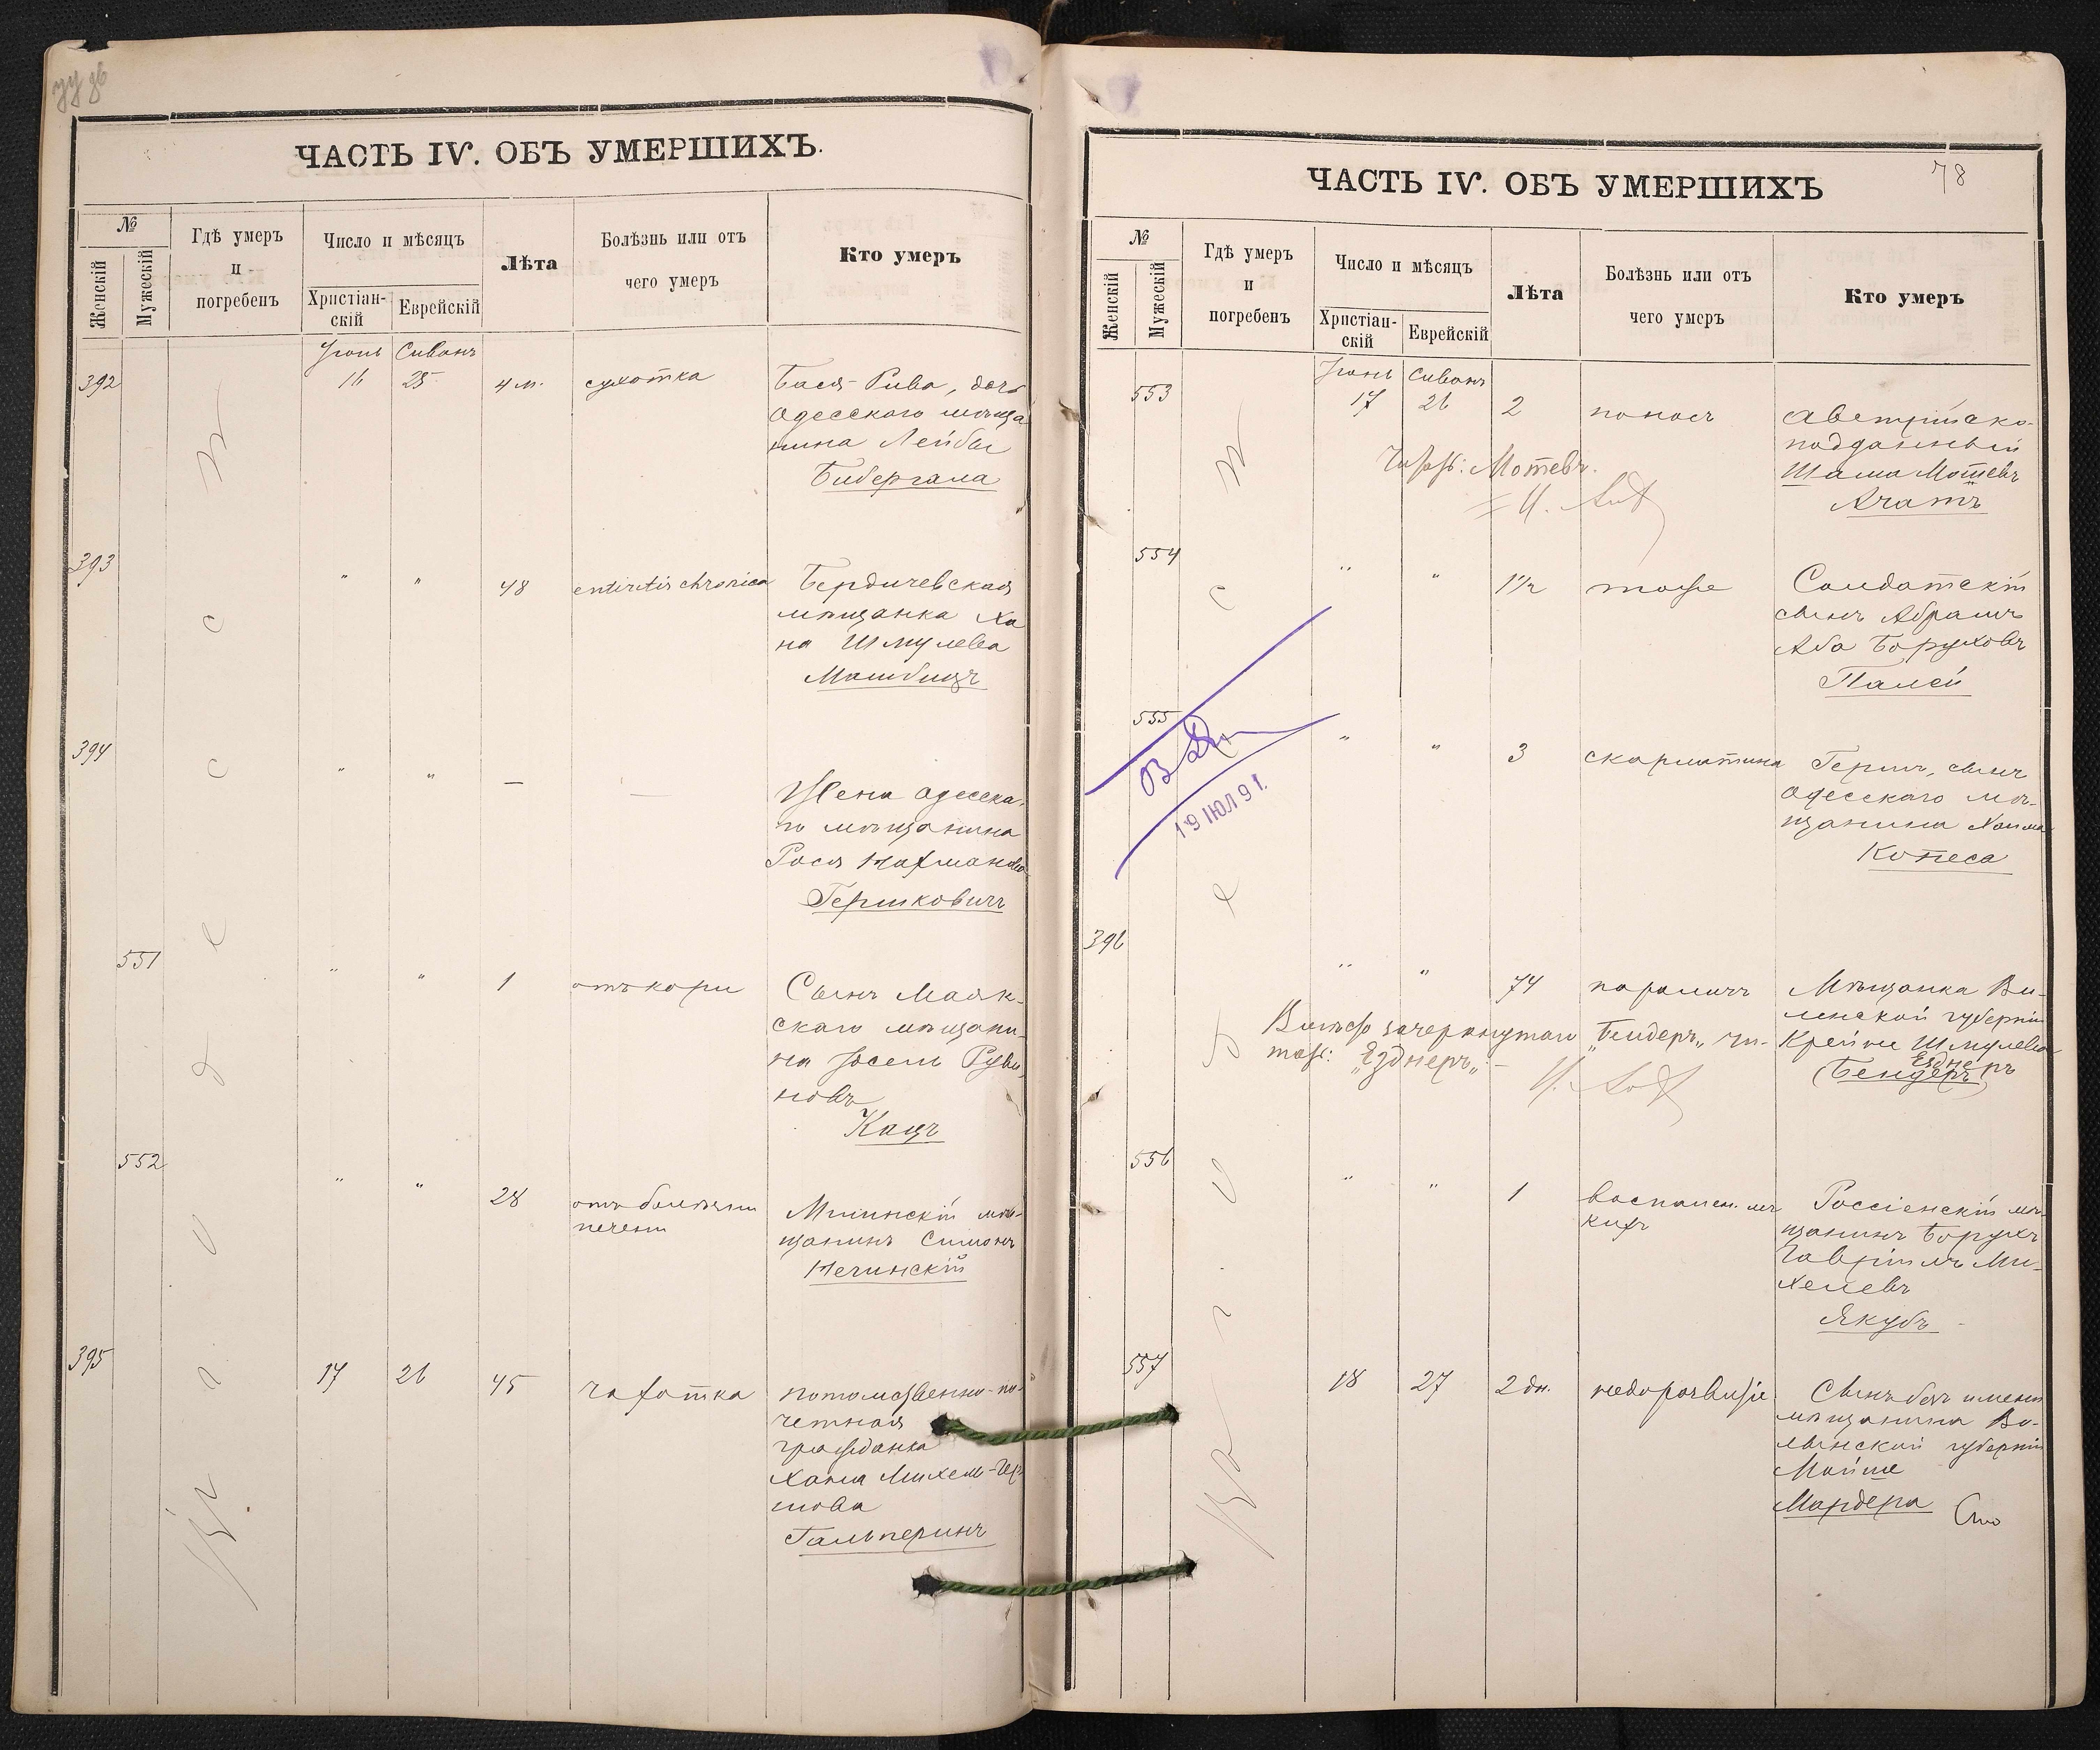 ЧАСТЬ IV. ОБЪ УМЕРШИХЪ.
№
Женскій
Мужескій
Гдѣ умеръ
и
погребенъ
Число и мѣсяцъ
Христіан-
скій
Еврейскій
Лѣта
Болѣзнь или отъ
чего умеръ
Кто умеръ
Іюнь Сиванъ
392 16 25 4 м. сухотка Бася-Рива, дочь
Одесскаго мѣща
нина Лейбы
Бибергала
393 " " 48 entiritis chronica Бердичевская
мѣщанка Ха
на Шмулева
Машбицъ
394 " " — — Жена Одесска-
го мѣщанина
Рося Нахманова
Гершковичъ
551 " " 1 отъ кори Сынъ Маяк-
скаго мѣщани-
на Іосель Руви-
новъ
Кацъ
552 " " 28 отъ болѣзни
печени
мѣ-
щанинъ Симонъ
Нечинскій
395 17 26 45 чахотка потомственно-по-
четная
гражданка
Хана Михель-Гер
шова
Гальперинъ
въ г. Одессѣ
ЧАСТЬ IV. ОБЪ УМЕРШИХЪ
78
№
Женскій
Мужескій
Гдѣ умеръ
и
погребенъ
Число и мѣсяцъ
Христіан-
скій
Еврейскій
Лѣта
Болѣзнь или отъ
чего умеръ
Кто умеръ
Іюнь Сиванъ
553 17 26 2 поносъ Австрійско-
подданный
Шама Мотевъ
Ачатъ
Мотевъ.
554 " " 1 1/2 тоже Солдатскій
сынъ Абрамъ
Аба Боруховъ
Палей
555 " " 3 скарлатина Гершъ, сынъ
Одесскаго мѣ-
щанина Хаима
Копеса
19 ІЮЛ 91.
396 " " 74 параличъ Мѣщанка Ви-
ленской губерніи
Крейне Шмулева
Езднеръ
(Бендеръ)
Вмѣсто зачеркнутаго "Бендеръ" чи-
тать: "Езднеръ".
556 " " 1 воспален. лег
кихъ
Россіенскій мѣ-
щанинъ Борухъ
Гавріилъ Ми-
хелевъ
Якубъ
557 18 27 2 дн. недоразвитіе Сынъ безъ имени
мѣщанина Во-
лынской губерніи
Мойше
Мардера
въ г. Одессѣ